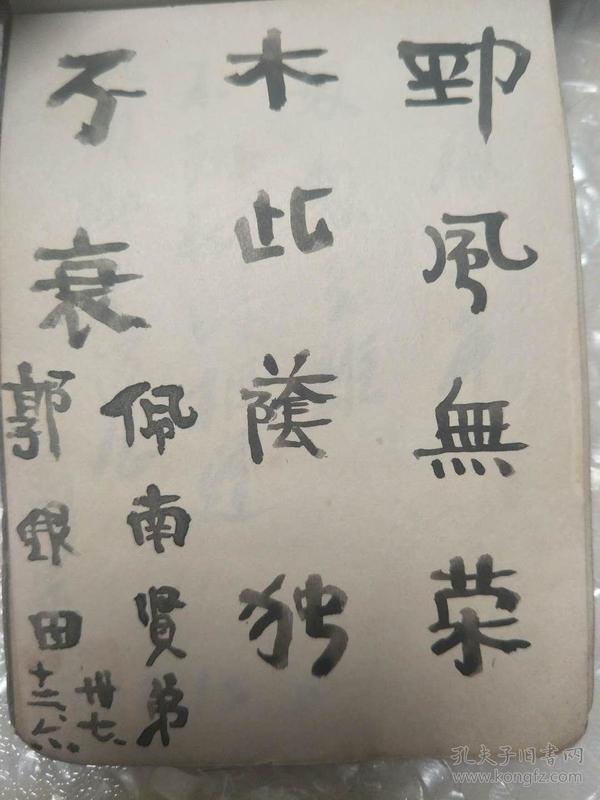 勁風無荣
木此蔭独
不衰
佩南贤弟
郭銀田
卅七、
十二、六、
孔夫子旧书网
www.kongfz.com